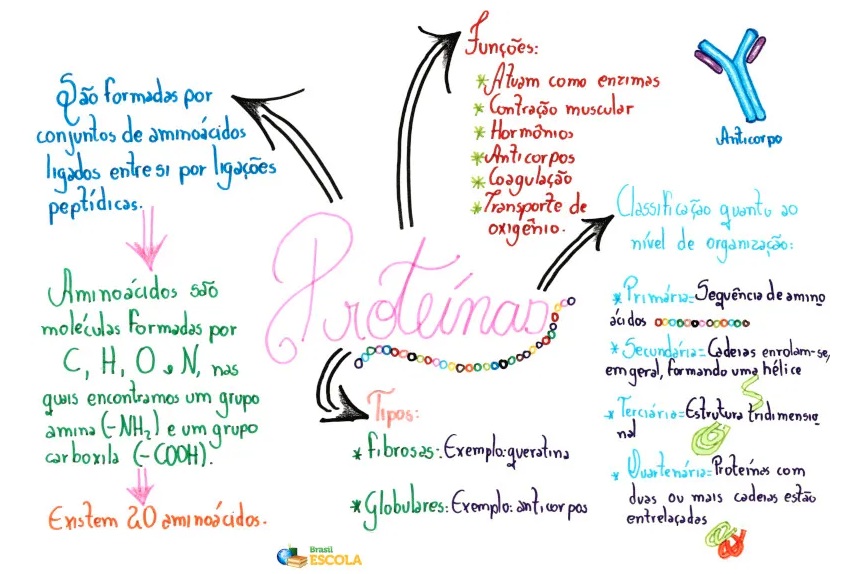 Proteínas
São formadas por
conjuntos de aminoácidos
ligados entre si por ligações
peptídicas.
Aminoácidos são
moléculas formadas por
C, H, O e N, nas
quais encontramos um grupo
amina (-NH₂) e um grupo
carboxila (-COOH).
Existem 20 aminoácidos.
Funções:
*Atuam como enzimas
*Contração muscular
*Hormônios
*Anticorpos
*Coagulação
*Transporte de
oxigênio.
Anticorpo
Classificação quanto ao
nível de organização:
*Primária=Sequência de amino
ácidos
*Secundária=Cadeias enrolam-se,
em geral, formando uma hélice
*Terciária=Estrutura tridimensio
nal
*Quartenária=Proteínas com
duas ou mais cadeias estão
entrelaçadas
Tipos:
*Fibrosas: Exemplo: queratina
*Globulares: Exemplo: anticorpos
Brasil
ESCOLA